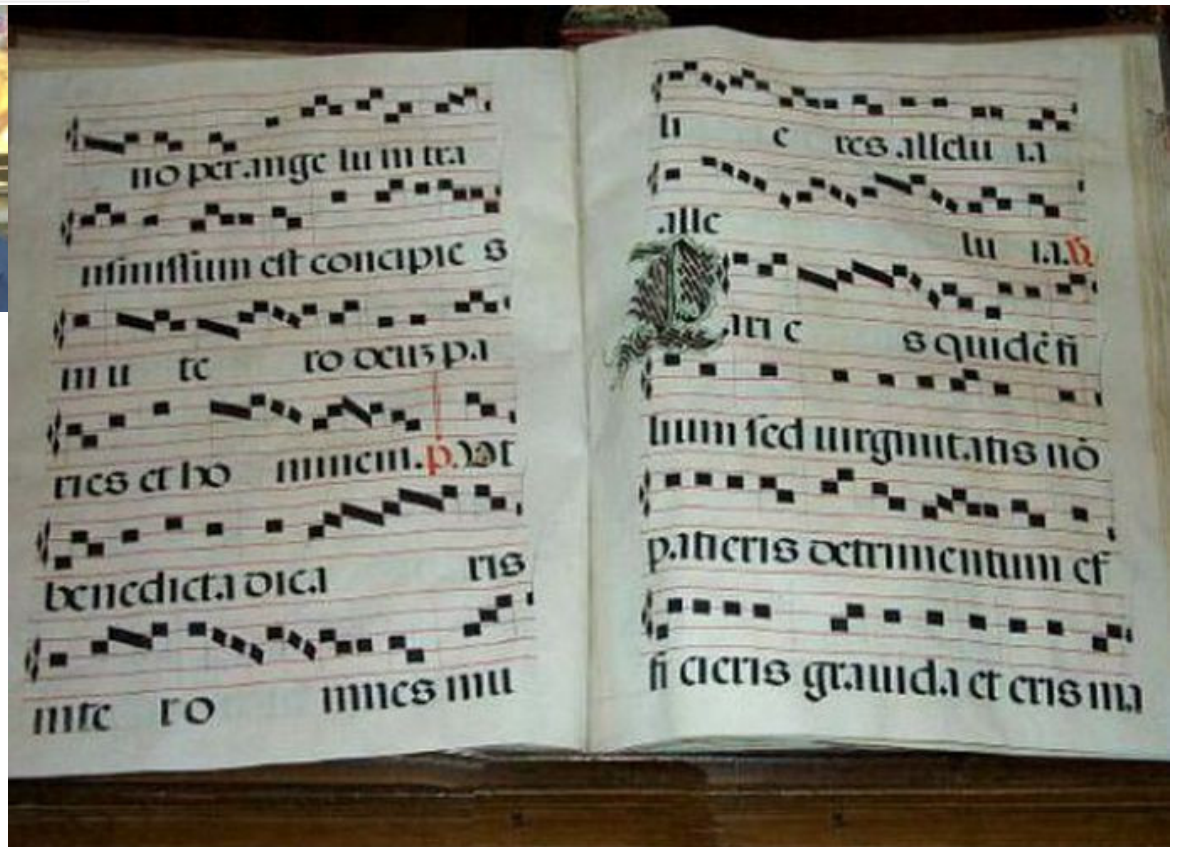 no per ange lu m tra
nſmiſſum eſt concipie s
in u te ro deuz pa
ries et ho minem. p. Vt
benedicta dica ris
inte r o mnes mu
li e res allelu ia
alle lu ia. V.
Pari e s quidē fi
lium ſed uirginitatis nō
patieris detrimentum ef
fi cieris grauida et eris ma